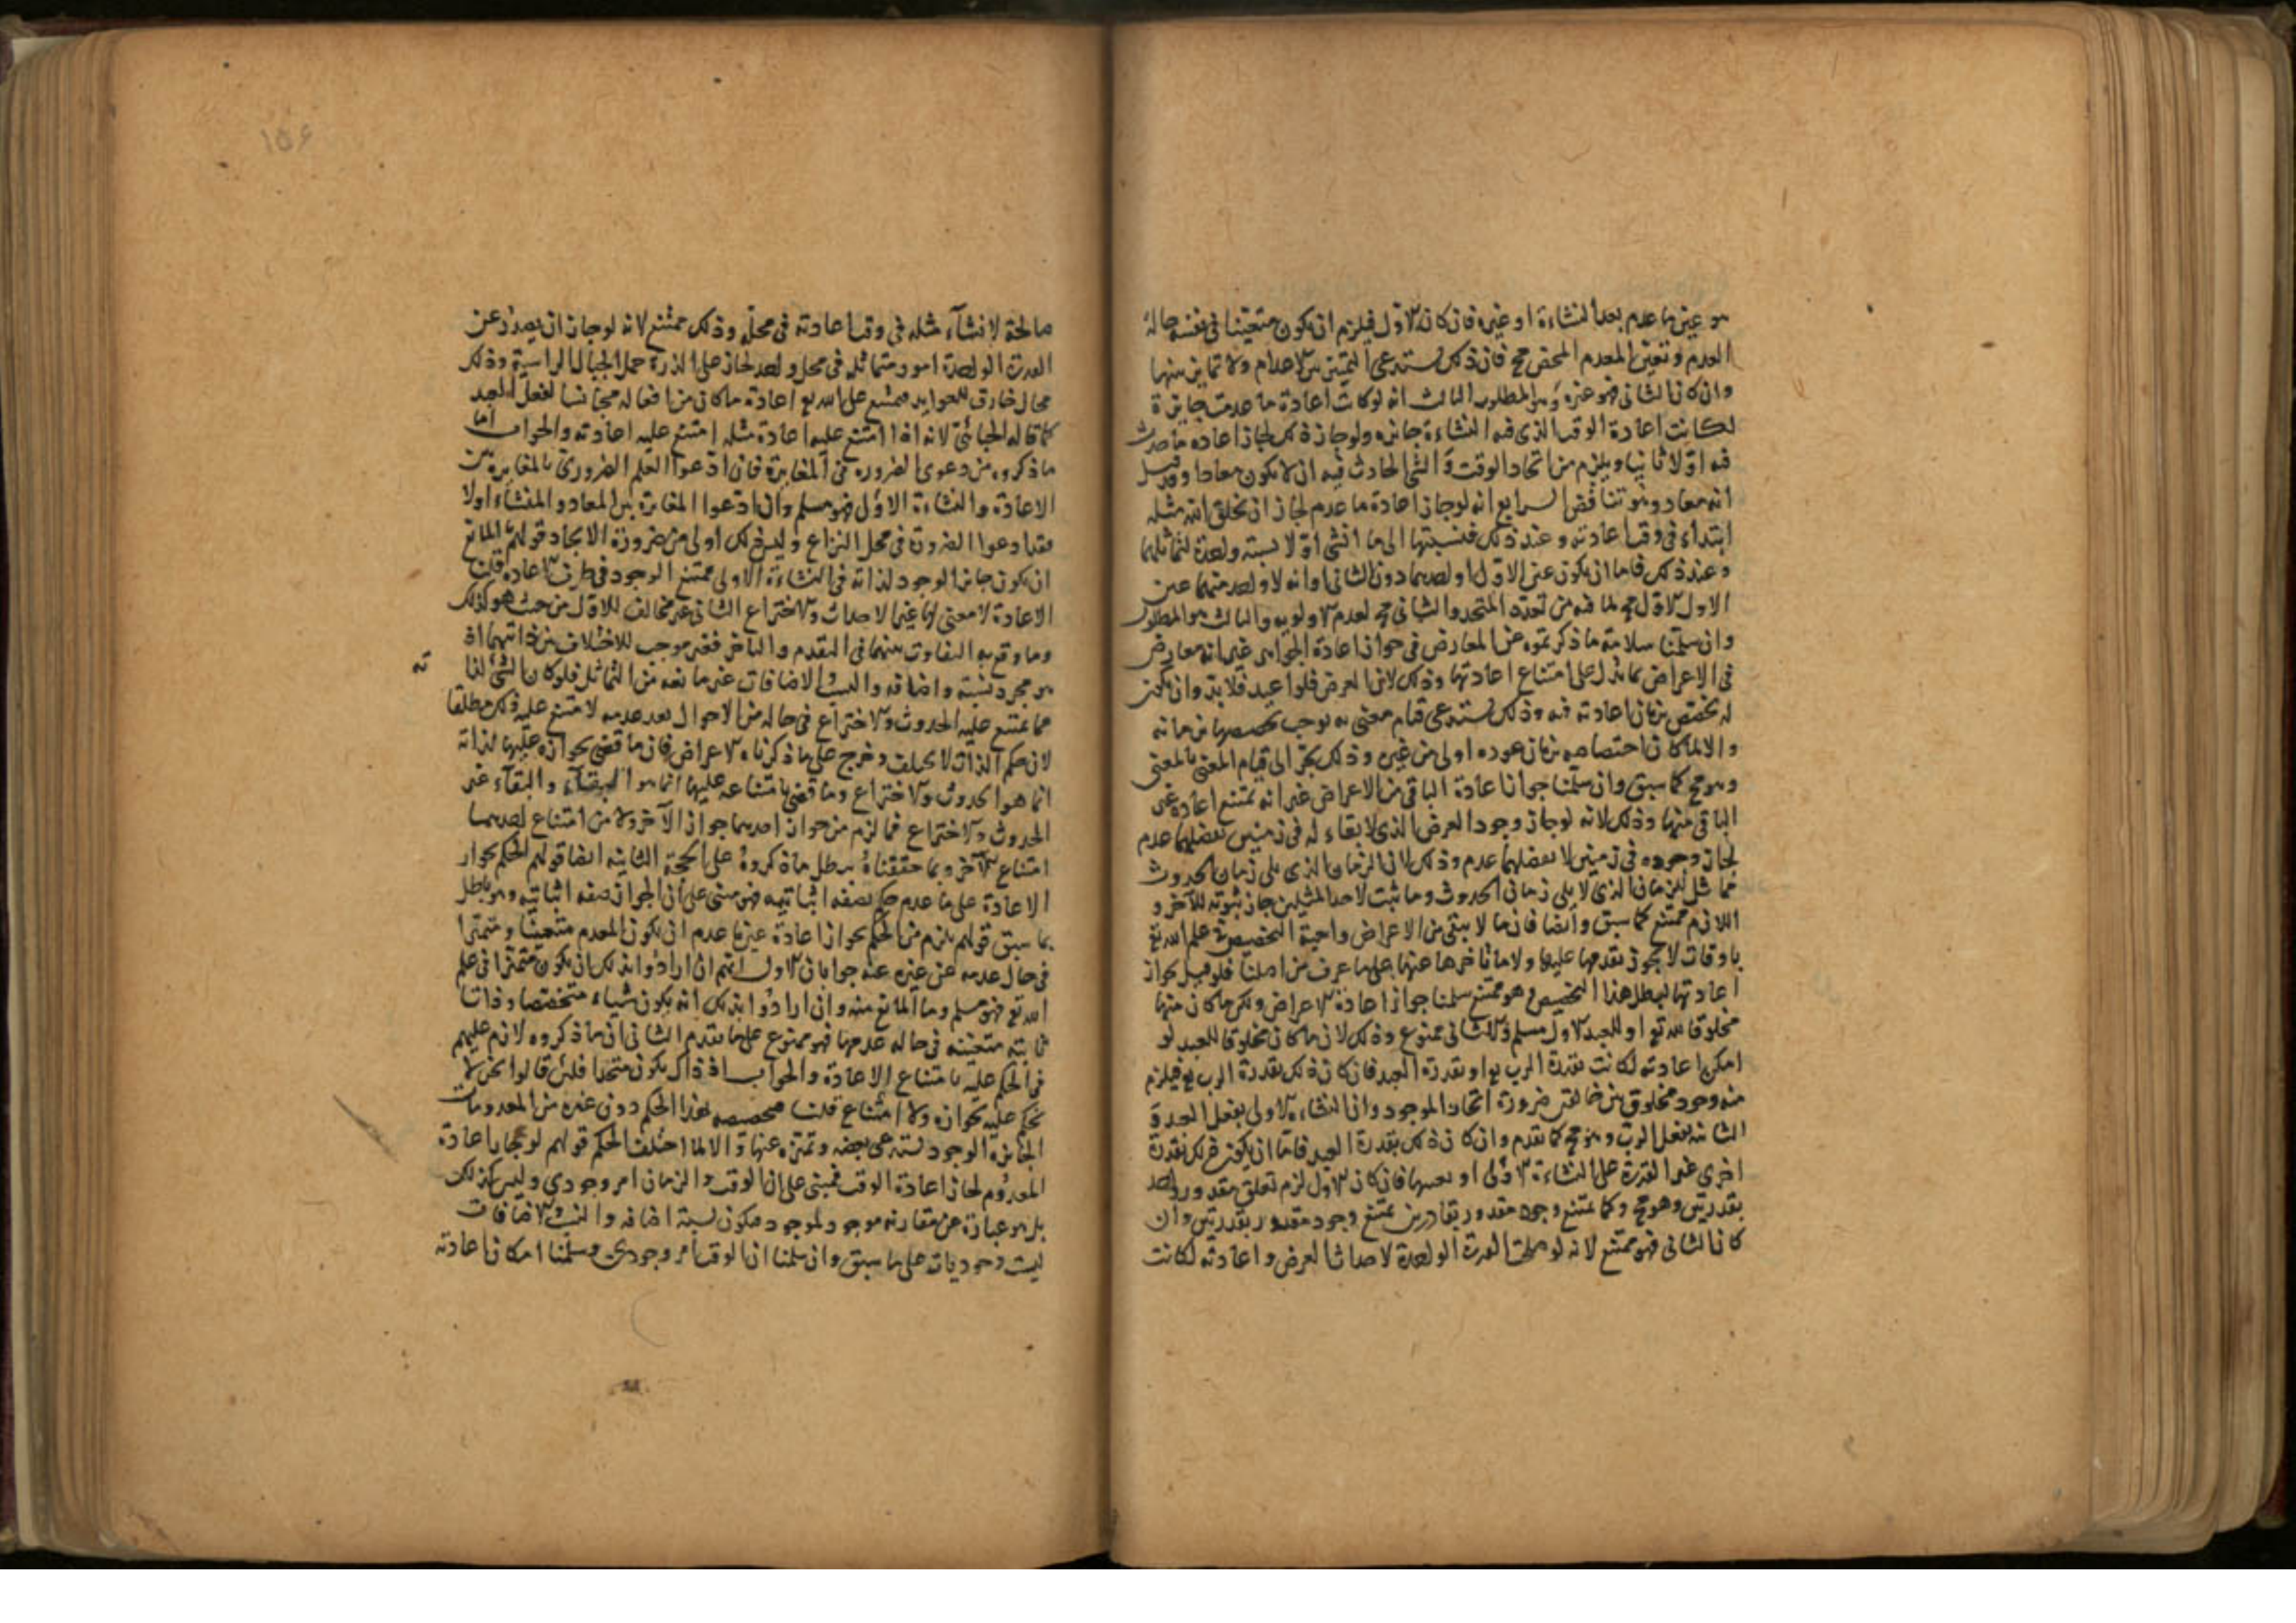 هو عين ما عدم بعد النشاءة او غيره فان كان الاول فيلزم ان يكون متعينا في نفسه حالة
العدم وتعين المعدم المحض مح فان ذلك يستدعى التميز بين الاعدام ولا تمايز بينها
وان كان الثانى فهو غيره وهو المطلوب الثالث انه لو كانت اعادة ما عدمت جايزة
لكانت اعادة الوقت الذى فيه النشاءة جايزه ولو جاز ذلك لجاز اعاده ما حدث
فيه اولا ثانيا ويلزم من اتحاد الوقت والشى الحادث فيه ان لا يكون معادا وقد قيل
انه معاد وهو تناقض الرابع انه لو جاز اعادة ما عدم لجاز ان يخلق الله مثله
ابتداء فى وقت اعادته وعند ذلك فنسبتها الى ما انشى اولا نسبة واحدة لتماثلهما
وعند ذلك فاما ان يكون عين الاول احدهما دون الثانى او انه لا واحد منهما عين
الاول الاول مح لما فيه من تعدد المتحد والثانى مح لعدم الاولويه والثالث هو المطلوب
وان سلمنا سلامة ما ذكرتموه عن المعارض فى جواز اعادة الجواهر غير انه معارض
فى الاعراض بما يدل على امتناع اعادتها وذلك لان العرض فلو اعيد فلا بد وان يكون
له تخصص بزمان اعادته فيه وذلك يستدعى قيام معنى به يوجب تخصصه بزمانه
والا لما كان اختصاصه بزمان عوده اولى من غيره وذلك يجر الى قيام المعنى بالمعنى
وهو مح كما سبق وان سلمنا جواز اعادة الباقى من الاعراض غير انه يمتنع اعادة غير
الباقى منها وذلك لانه لو جاز وجود العرض الذى لا بقاء له فى زمنين يفصلهما عدم
لجاز وجوده فى زمنين لا يفصلهما عدم وذلك لان الزمان الذى يلى زمان الحدوث
مماثل للزمان الذى لا يلى زمان الحدوث وما ثبت لاحد المثلين جاز ثبوته للآخر و
اللازم ممتنع كما سبق وايضا فان ما لا يبقى من الاعراض واجبة التخصيص فى علم الله تع
باوقات لا يجوز تقدمها عليها ولا تاخرها عنها على ما عرف من اصلنا فلو قيل بجواز
اعادتها لبطل هذا التخصيص وهو ممتنع سلمنا جواز اعادة الاعراض ولكن ما كان منها
مخلوقا لله تع او للعبد الاول مسلم والثانى ممنوع وذلك لان ما كان مخلوقا للعبد لو
امكن اعادته لكانت بقدرة الرب تع او بقدرة العبد فان كان ذلك بقدرة الرب تع فيلزم
منه وجود مخلوق بين خالقين ضرورة اتحاد الموجود وان النشاءة الاولى بفعل العبد و
الثانية بفعل الرب وهو مح كما تقدم وان كان ذلك بقدرة العبد فاما ان يكون ذلك بقدرة
اخرى غير القدرة على النشاءة الاولى او بعينها فان كان الاول لزم تعلق مقدور واحد
بقدرتين وهو مح وكما يمتنع وجود مقدور بقادرين يمتنع وجود مقدور بقدرتين وان
كان الثانى فهو ممتنع لانه لو صلحت القدرة الواحدة لاحداث العرض واعادته لكانت
صالحة لانشآء مثله فى وقت اعادته فى محله وذلك ممتنع لانه لو جاز ان يصدر عن
القدرة الواحدة امور متماثله فى محل واحد لجاز على الذرة حمل الجبال الراسية وذلك
محال خارق للعوايد فيمتنع على الله تع اعادة ما كان من افعاله مجانسا لفعل العبد
كما قاله الجبائى لانه اذا امتنع عليه اعادة مثله امتنع عليه اعادته والجواب اما
ما ذكروه من دعوى الضروره فى المغايرة فان ادعوا العلم الضرورى بالمغايرة بين
الاعادة والنشاءة الاولى فهو مسلم وان ادعوا المغايرة بين المعاد والمنشاء اولا
فقد ادعوا الضرورة فى محل النزاع وليس ذلك اولى من ضرورة الاتحاد قولهم المانع
ان يكون جايز الوجود لذاته فى النشاءة الاولى ممتنع الوجود فى طرف الاعاده قلنا
الاعادة لا معنى لها غير الاحداث والاختراع الثانى غير مخالف للاول من حيث هو كذلك
وما وقع به التفاوت بينهما فى التقدم والتاخر فغير موجب للاختلاف بين ذاتيهما اذ
هو مجرد نسبة واضافه والنسب والاضافات غير مانعه من التماثل فلو كان الشى لذاته
مما يمتنع عليه الحدوث والاختراع فى حالة من الاحوال بعد عدمه لامتنع عليه ذلك مطلقا
لان حكم الذات لا يختلف وخرج على ما ذكرناه الاعراض فان ما قضى بجوازه عليها لذاته
انما هو الحدوث والاختراع وما قضى بامتناعه عليها انما هو البقاء والبقآء غير
الحدوث والاختراع فما لزم من جواز احدهما جواز الآخر ولا من امتناع احدهما
امتناع الآخر وبما حققناه يبطل ما ذكروه على الحجة الثانية ايضا قولهم الحكم بجواز
الاعادة على ما عدم حكم بصفه اثباتيه فهو مبنى على ان الجواز صفه اثباتيه وهو باطل
بما سبق قولهم يلزم من الحكم بجواز اعادة عين ما عدم ان يكون المعدم متعينا ومتميزا
فى حال عدمه عن غيره عنه جوابان الاول انهم ان ارادوا بذلك ان يكون متميزا فى علم
الله تع فهو مسلم وما المانع منه وان ارادوا بذلك انه يكون شياء متخصصا وذاتا
ثابتة متعينه فى حالة عدمها فهو ممنوع على ما تقدم الثانى ان ما ذكروه لازم عليهم
فى الحكم عليه بامتناع الاعادة والجواب اذ ذاك يكون متحدا فلئن قالوا نحن لا
نحكم عليه بجوازه ولا امتناع قلنا تخصصه بهذا الحكم دون غيره من المعدومات
الجايزة الوجود يستدعى تعينه وتميزه عنها والا لما اختلف الحكم قولهم لو جاز اعادة
المعدوم لجاز اعادة الوقت فمبنى على ان الوقت والزمان امر وجودي وليس كذلك
بل هو عبارة عن مقارنه موجود لموجود فيكون نسبة اضافه والنسب والاضافات
ليست وجوديات على ما سبق وان سلمنا ان الوقت امر وجودى وسلمنا امكان اعادته